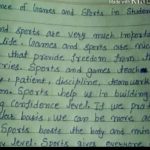 nce of Games and Sports in Student
and sports are very much importa
life. Games and sports are muc
that provide freedom from t
ries. Sports and games teach
patience, discipline, team work
Sports help us in building
g confidence level. If we prac
lar basis, we can be more ac
Sports boosts the body and min
level. Sports gives everyone